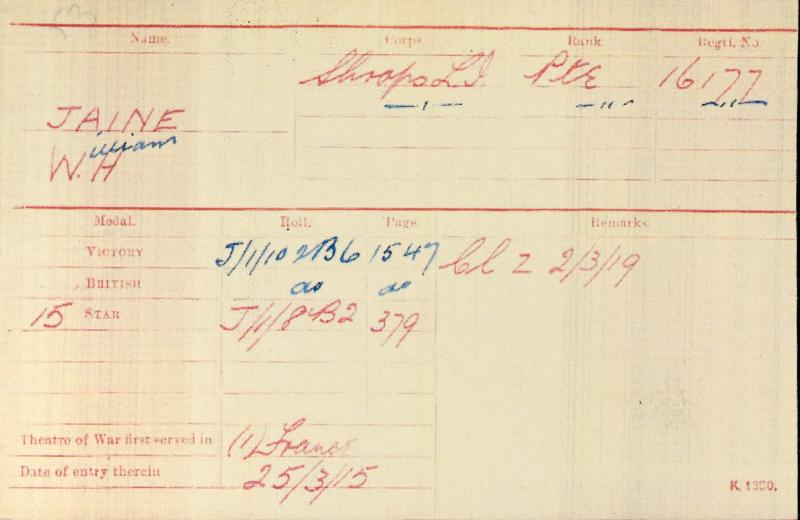 Name. Corps Rank. Regtl. No.
Shrops L.I. Pte 16177
—"— —"— —"—
JAINE
W.illiam H
Medal. Roll. Page. Remarks.
VICTORY J/1/102B6 1547 Cl Z 2/3/19
BRITISH do do
15 STAR J/1/8B2 379
Theatre of War first served in (1) France
Date of entry therein 25/3/15
K. 1380.